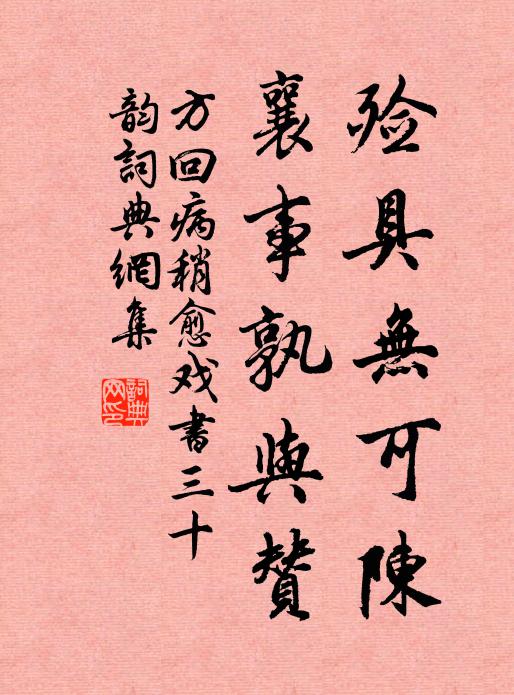 殮具無可陳
襄事孰與贊
方回病稍愈戏書三十
韵詞典網集
詞典
网印